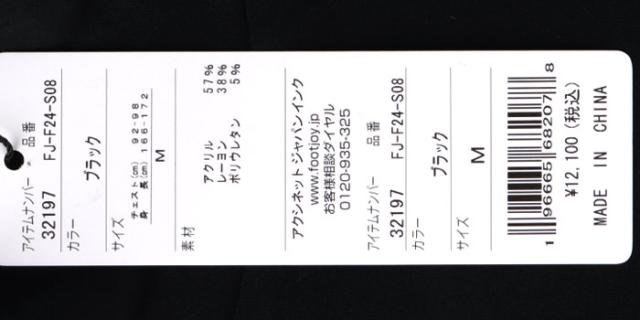 アイテムナンバー 品番
32197 FJ-F24-S08
カラー
ブラック
サイズ
チェスト(cm) 92-98
身 長(cm) 166-172
M
素材
アクリル 57%
レーヨン 38%
ポリウレタン 5%
アクシネットジャパンインク
www.footjoy.jp
お客様相談ダイヤル
0120-935-325
アイテムナンバー 品番
32197 FJ-F24-S08
カラー
ブラック
サイズ
M
1 96665 68207 8
¥12,100(税込)
MADE IN CHINA